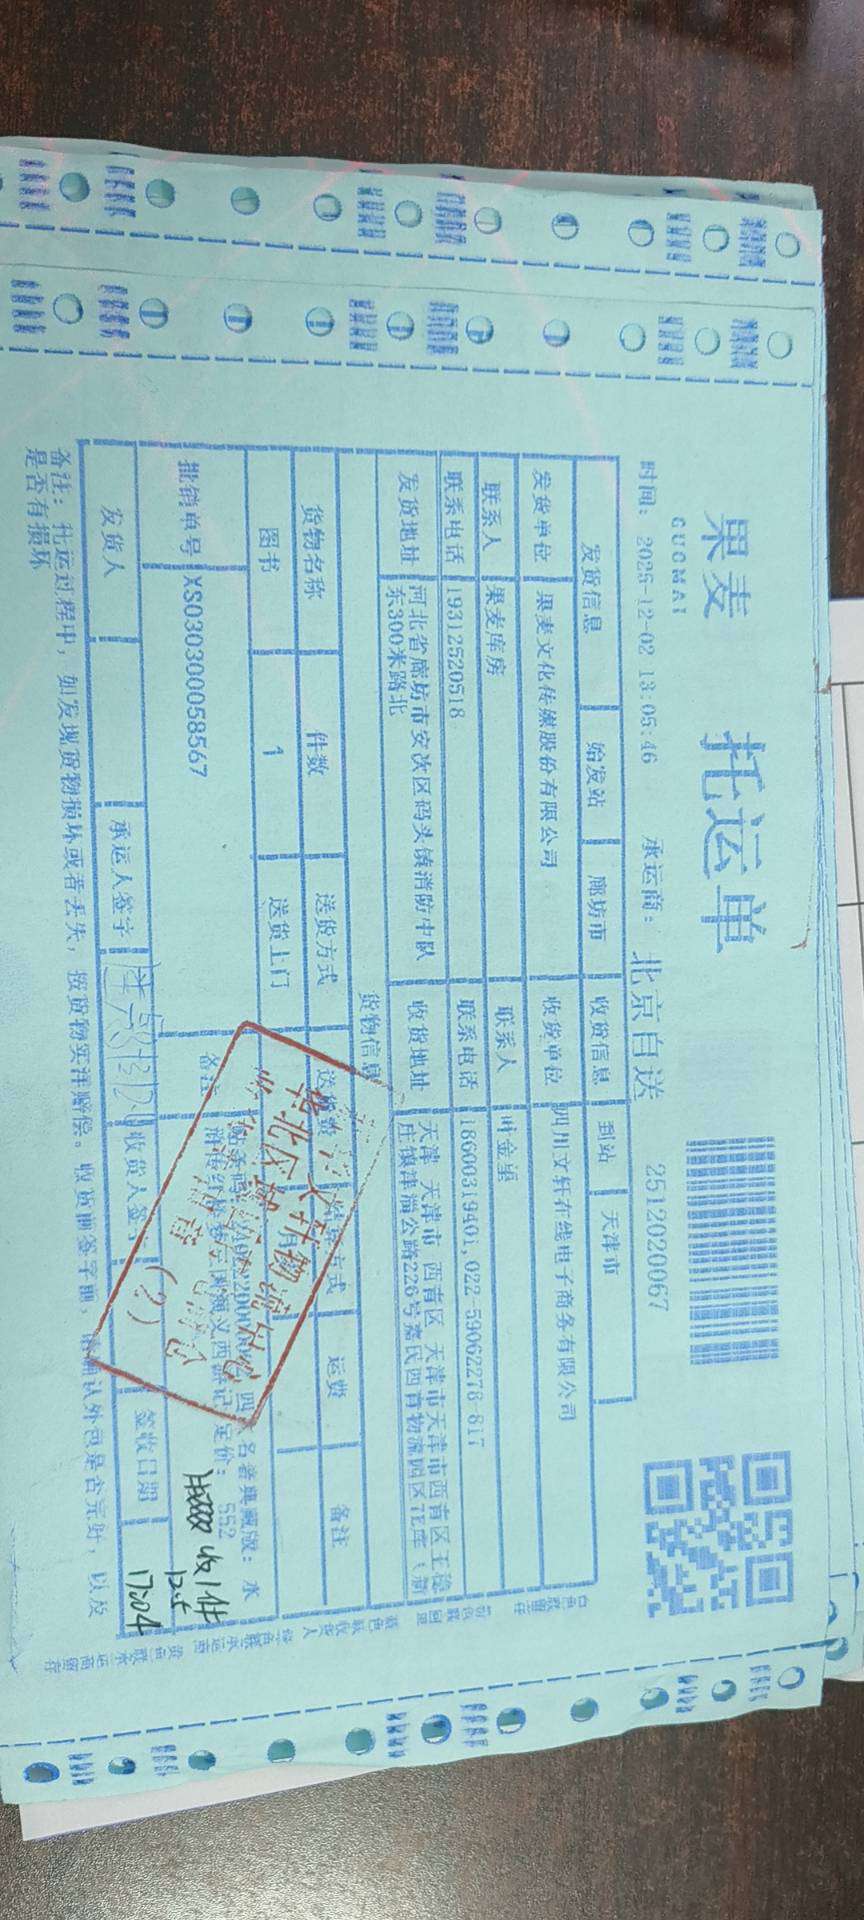 果麦
GUOMAI
托运单
时间: 2025-12-02 13:05:46 承运商: 北京自送 2512020067
发货信息 始发站 廊坊市 收货信息 到站 天津市
发货单位 果麦文化传媒股份有限公司 收货单位 四川文轩在线电子商务有限公司
联系人 果麦库房 联系人 叶金卓
联系电话 19312520518 联系电话 18600319401,022-59062278-817
发货地址 河北省廊坊市安次区码头镇消防中队
东300米路北
收货地址 天津 天津市 西青区 天津市天津市西青区王稳
庄镇津淄公路226号嘉民西青物流园区7E库(新
货物信息
货物名称 件数 送货方式 送货费 结算方式 运费 备注
图书 1 送货上门 月
批销单号 XS030300058567 备注 四大名著典藏版: 水
浒传红楼梦三国演义西游记 定价: 552
发货人 承运人签字 收货人签字 签收日期
收1件
12.5
17:04
华北区域物流
(2)
备注: 托运过程中, 如发现货物损坏或者丢失, 按货物实洋赔偿。收货前签字前, 请确认外包是否完好, 以及
是否有损坏